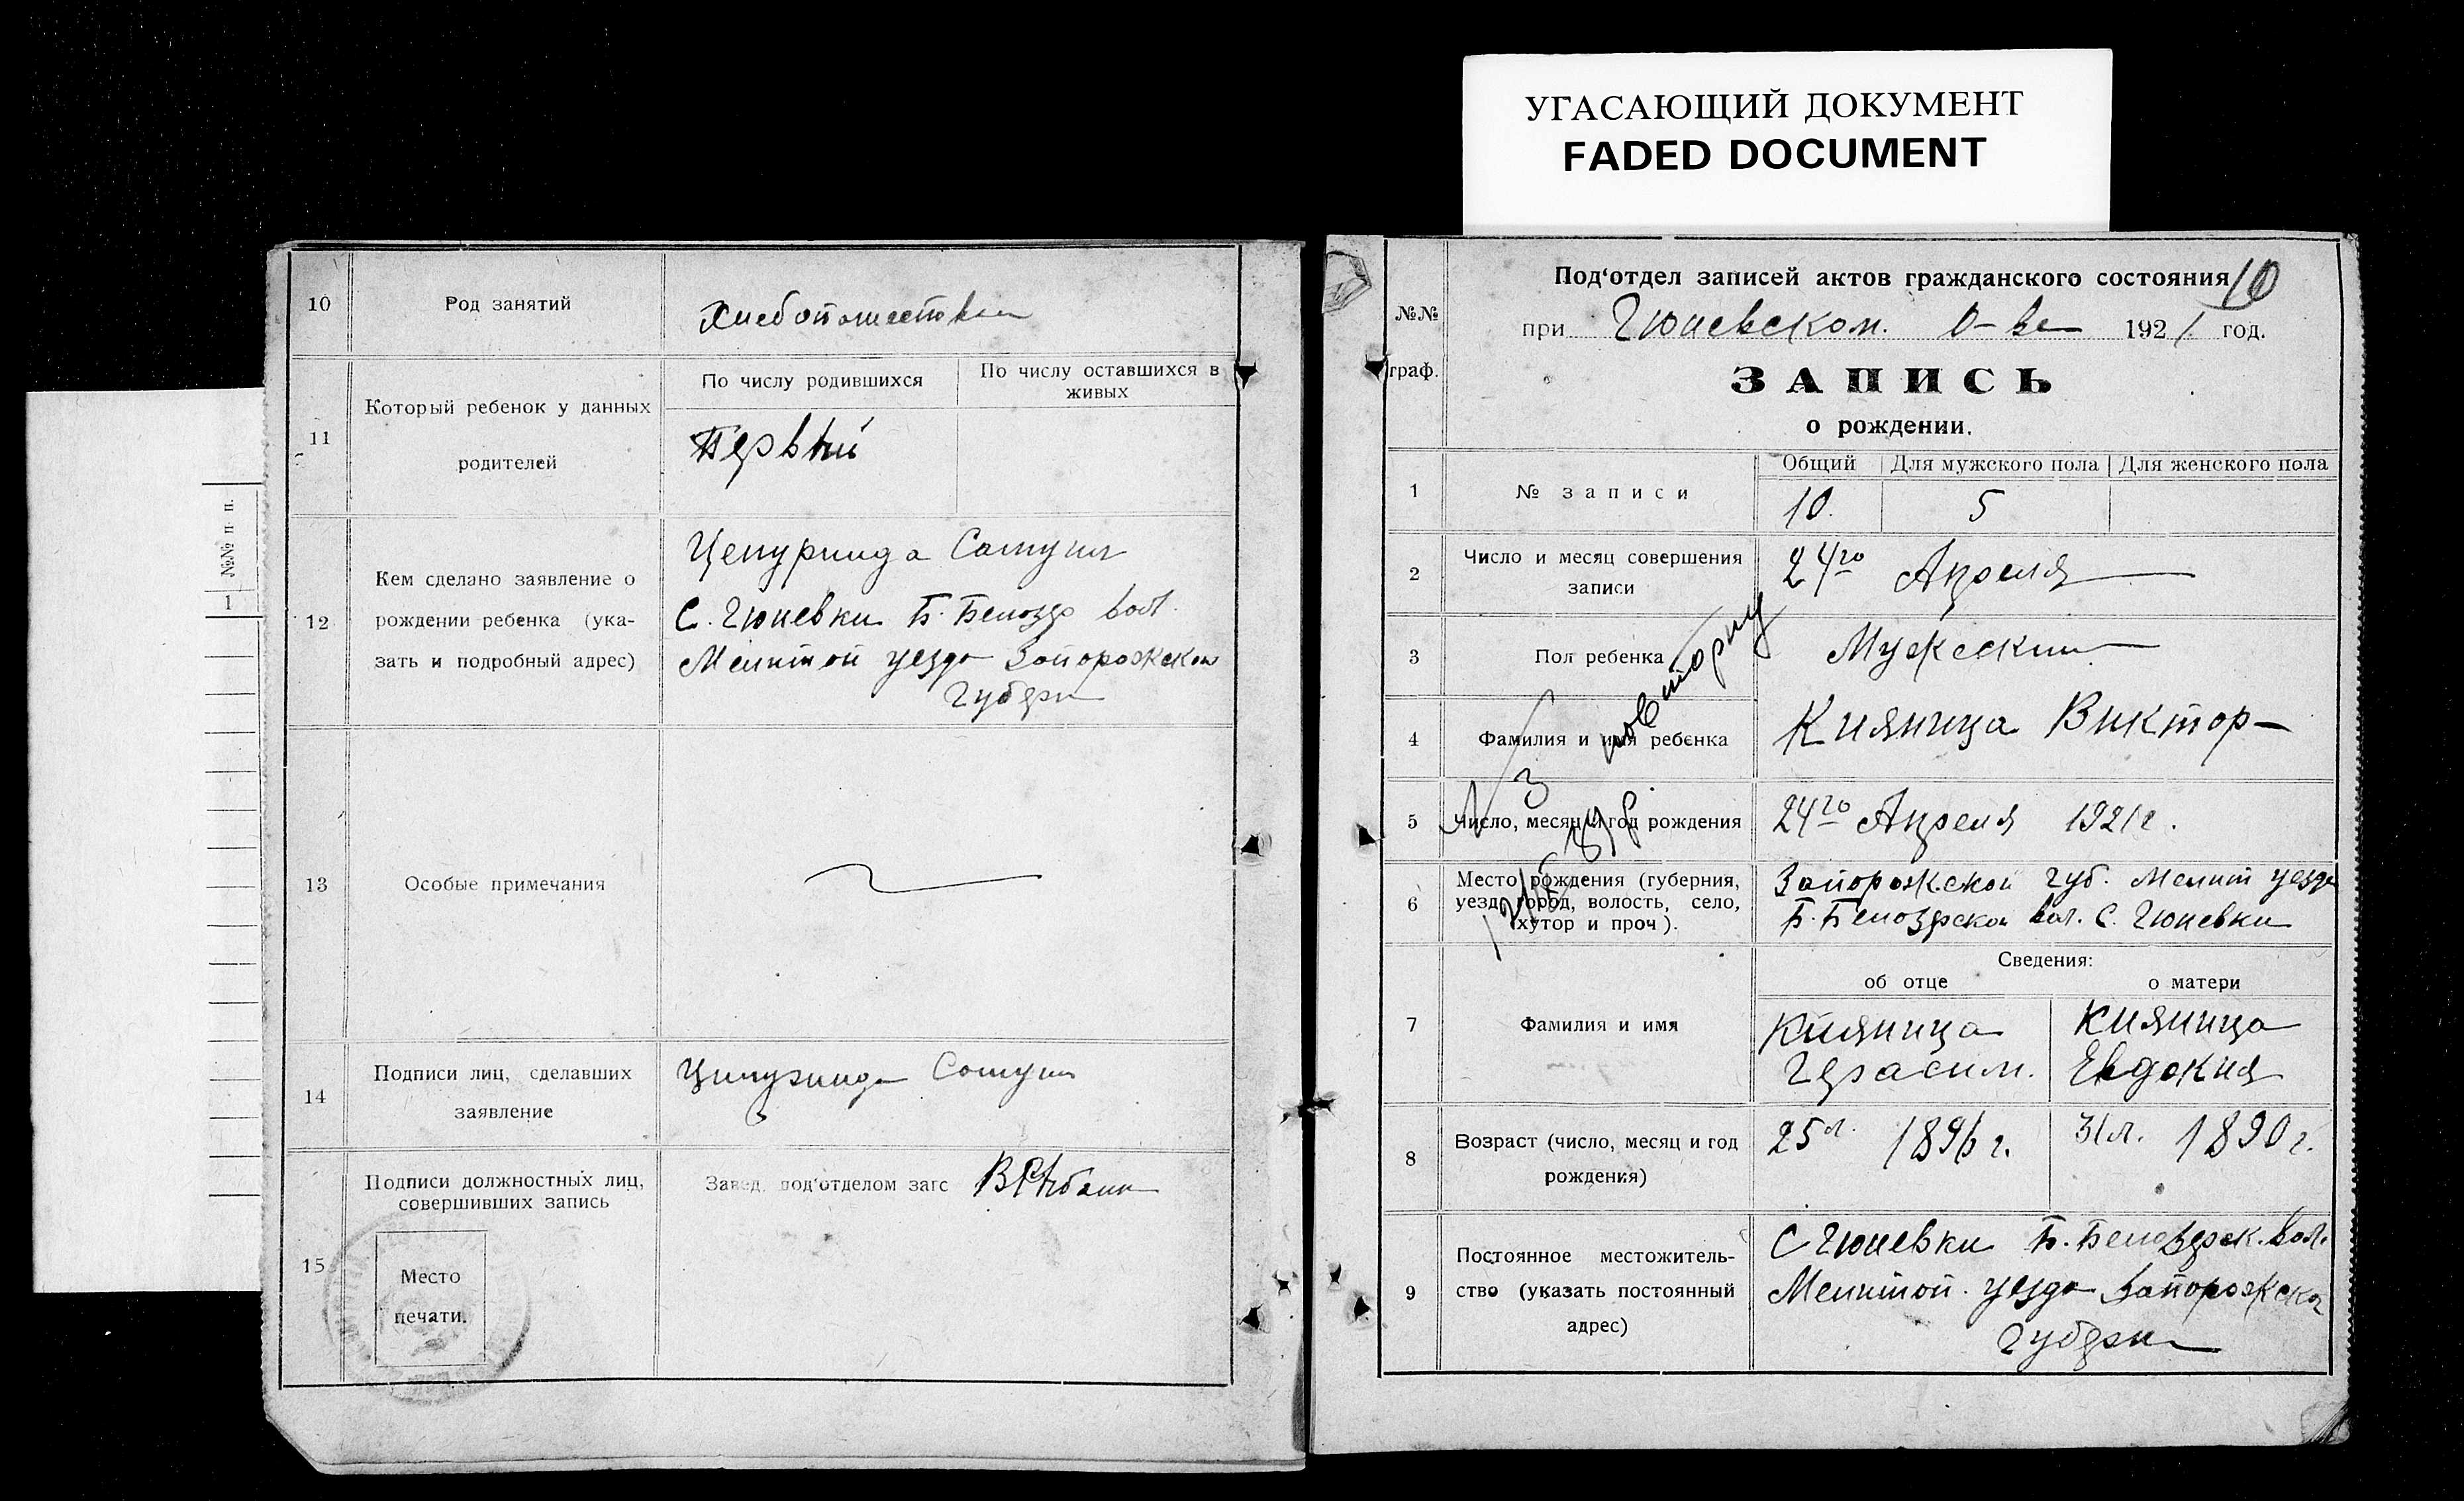 УГАСАЮЩИЙ ДОКУМЕНТ
FADED DOCUMENT
№№ п п.
1
10
Род занятий
Хлебопашество
11
Который ребенок у данных
родителей
По числу родившихся
По числу оставшихся в
живых
Первый
12
Кем сделано заявление о
рождении ребенка (ука-
зать и подробный адрес)
Самуил
С. Гюневки Б. Белозер вол.
Мелитоп уезда Запорожской
Губерн
13
Особые примечания
14
Подписи лиц, сделавших
заявление
Самуил
15
Подписи должностных лиц,
совершивших запись
Завед. под‘отделом загс
Место
печати.
№№
граф.
Под‘отдел записей актов гражданского состояния
10
при Гюневском О-ве 1921 год.
ЗАПИСЬ
о рождении.
1
№ записи
Общий
Для мужского пола
Для женского пола
10.
5
2
Число и месяц совершения
записи
24го Апреля
3
Пол ребенка
Мужеский
4
Фамилия и имя ребенка
Кияница Виктор
5
Число, месяц и год рождения
24го Апреля 1921г.
6
Место рождения (губерния,
уезд, город, волость, село,
хутор и проч).
Запорожской губ. Мелит уезда
Б. Белозерской вол. С. Гюневки
повторну
7
Фамилия и имя
Сведения:
об отце
о матери
Кияница
Герасим.
Кияница
Евдокия
8
Возраст (число, месяц и год
рождения)
25 л. 1896 г.
31 л. 1890 г.
9
Постоянное местожитель-
ство (указать постоянный
адрес)
С Гюневки Б. Белозерск. вол.
Мелитоп. уезда Запорожской
Губерн